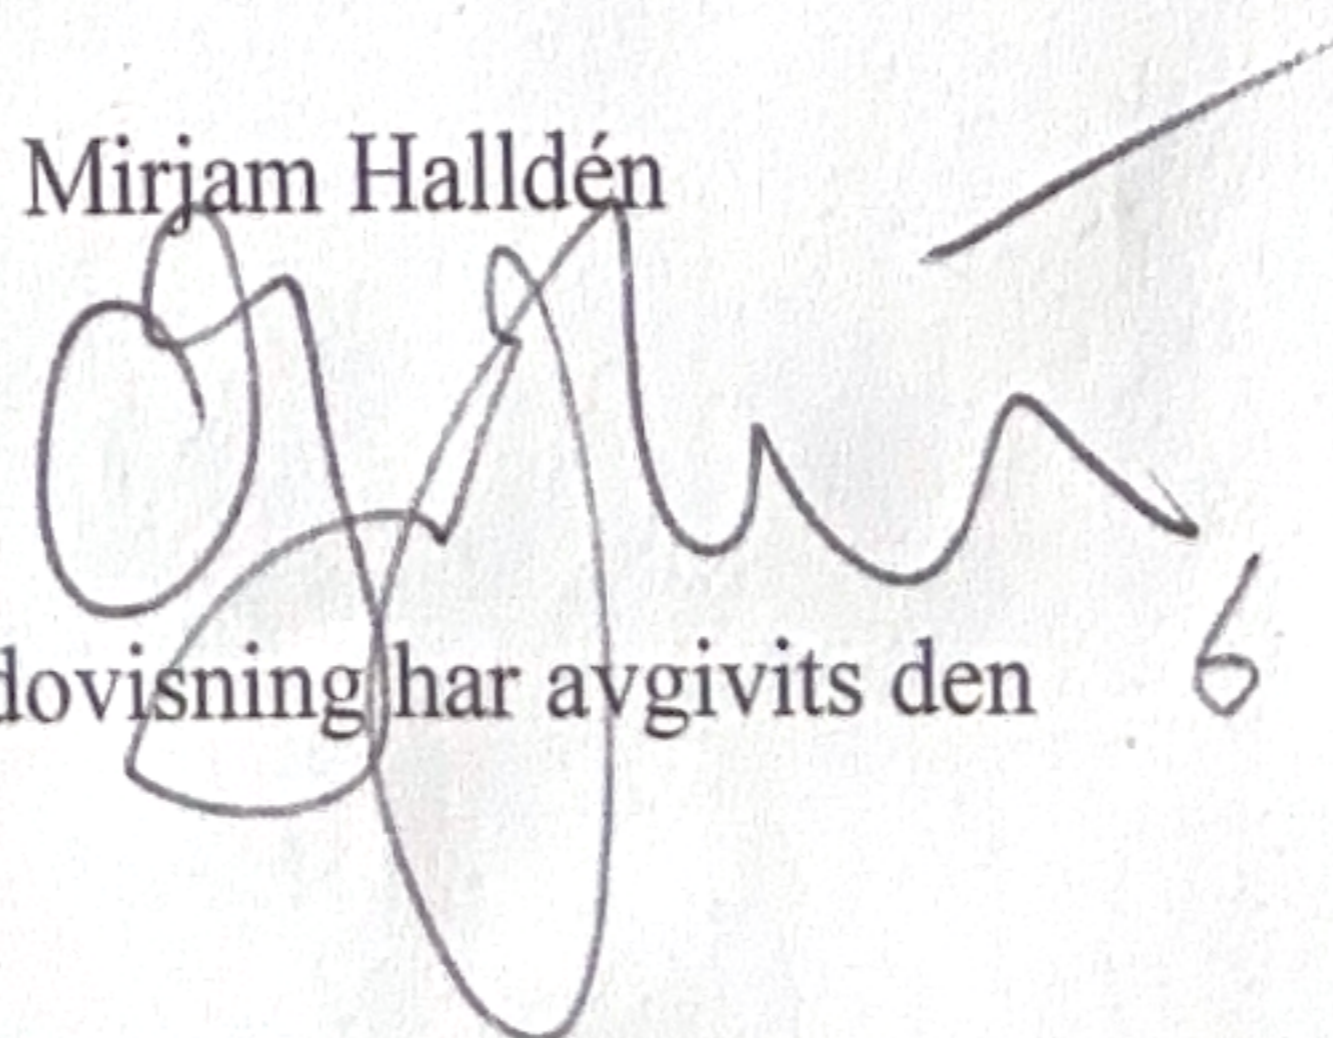 Mirjam Halldén
dovisning har avgivits den 6